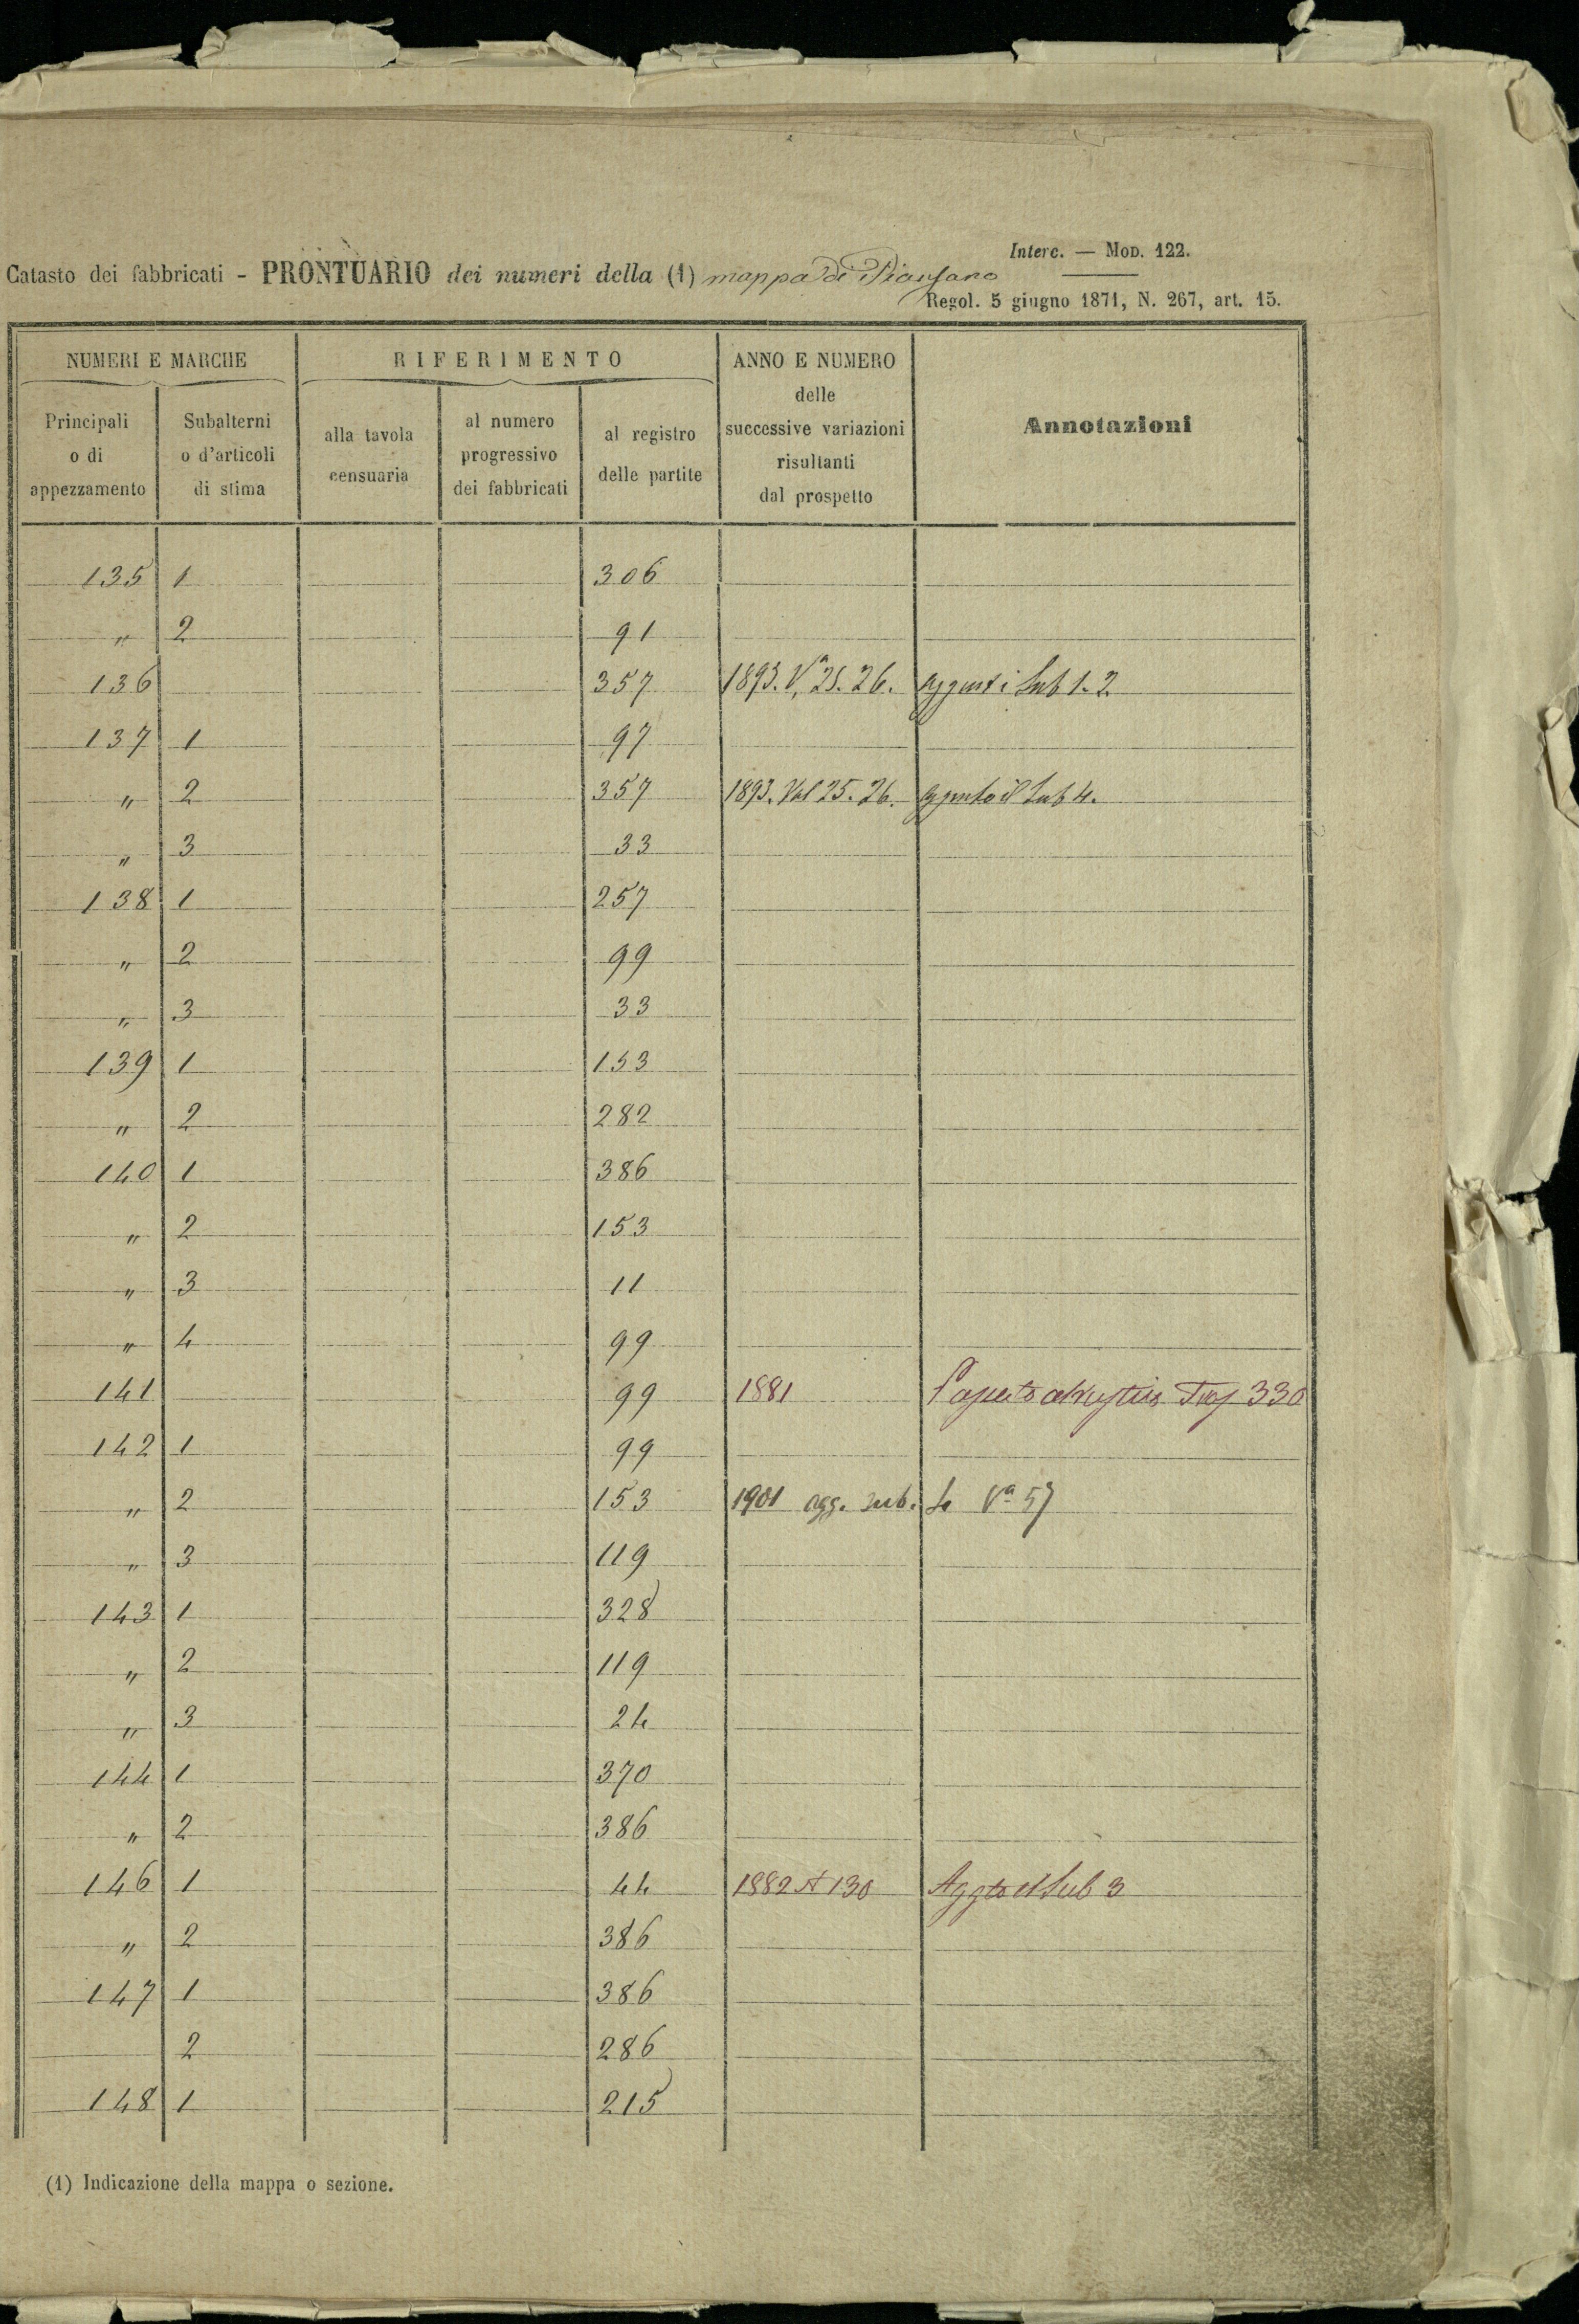 Interc. — Mod. 122.
Catasto dei fabbricati - PRONTUARIO dei numeri della (1) mappa di Piansano
Regol. 5 giugno 1871, N. 267, art. 15.
NUMERI E MARCHE RIFERIMENTO ANNO E NUMERO delle successive variazioni risultanti dal prospetto Annotazioni
Principali o di appezzamento Subalterni o d'articoli di stima alla tavola censuaria al numero progressivo dei fabbricati al registro delle partite
135 1 306
" 2 91
136 357 1893. Va 25. 26. aggiunti i Sub 1. 2
137 1 97
" 2 357 1893. Val 25. 26. il Sub 4.
" 3 33
138 1 257
" 2 99
" 3 33
139 1 153
" 2 282
140 1 386
" 2 153
" 3 11
" 4 99
141 99 1881 330
142 1 99
" 2 153 1901 agg. sub. 4 Va 57
" 3 119
143 1 328
" 2 119
" 3 24
144 1 370
" 2 386
146 1 44 1882 N 130 Aggto il Sub 3
" 2 386
147 1 386
2 286
148 1 215
(1) Indicazione della mappa o sezione.